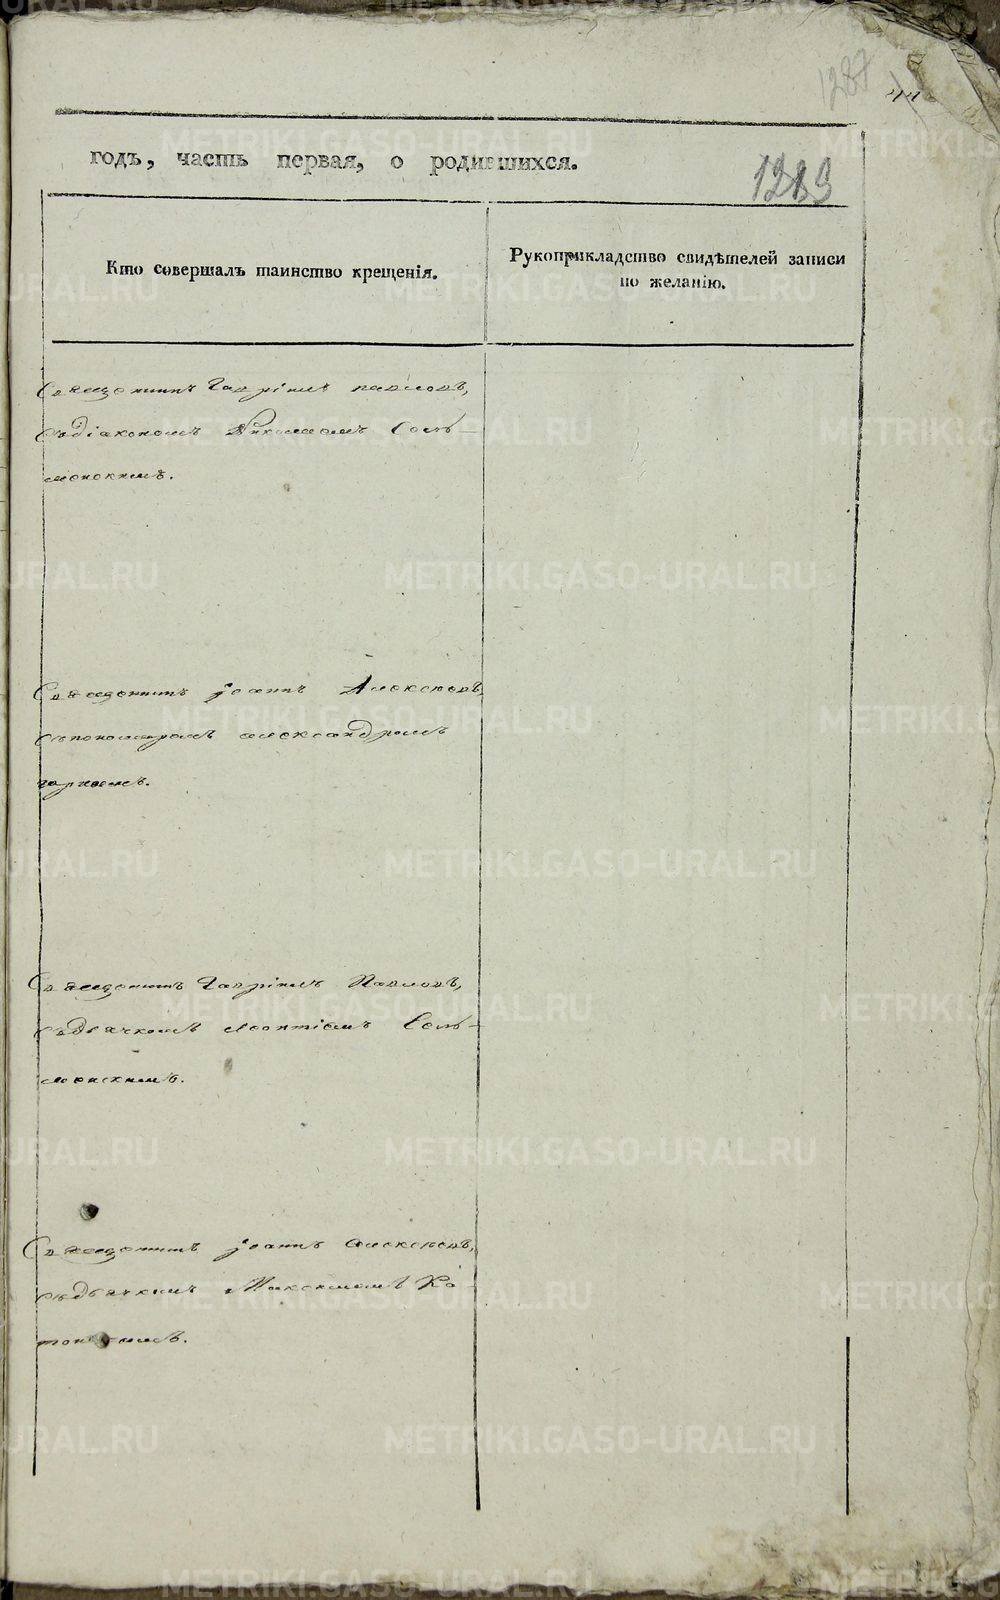 1287
44
годъ, часть первая, о родившихся.
1283
Кто совершалъ таинство крещенія.
Рукоприкладство свидѣтелей записи
по желанію.
Священникъ Гавріилъ Павловъ,
съ діакономъ Николаемъ Соль-
Священникъ Іоаннъ Алексѣевъ,
съ пономаремъ Александромъ
Священникъ Гавріилъ Павловъ,
съ дьячкомъ Леонтіемъ Соль-
Священникъ Іоаннъ Алексѣевъ,
съ дьячкомъ Максимомъ Ка-
METRIKI.GASO-URAL.RU